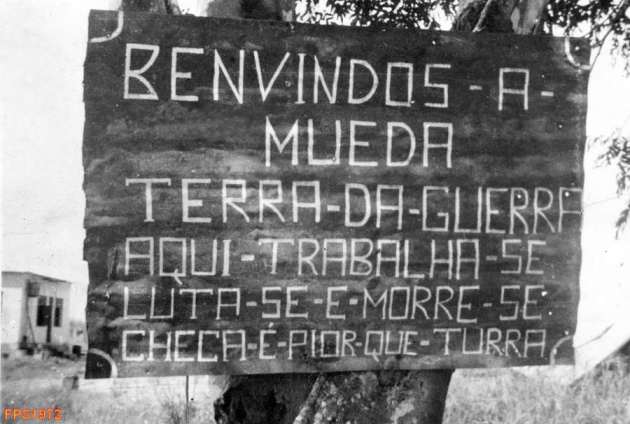 BENVINDOS - A -
MUEDA
TERRA-DA-GUERRA
AQUI-TRABALHA-SE
LUTA-SE-E-MORRE-SE
CHECA-É-PIOR-QUE-TURRA
FPS1972